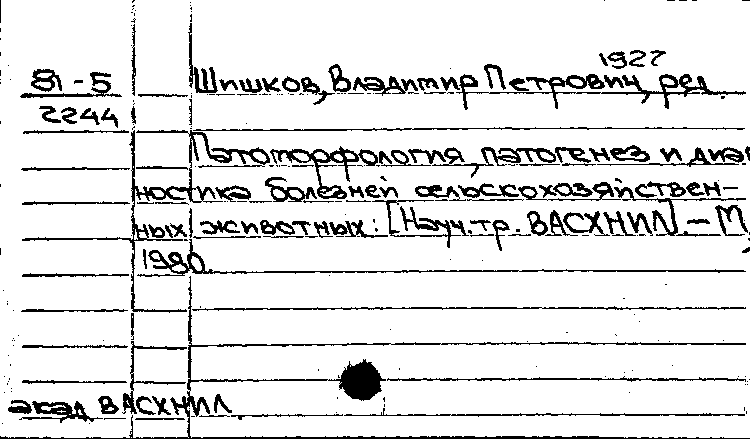 1927
81-5 Шишков, Владимир Петрович, ред.
2244
Патоморфология, патогенез и диаг
ностика болезней сельскохозяйствен-
ных животных: [Науч. тр. ВАСХНИЛ]. – М.,
1980.
акад ВАСХНИЛ.